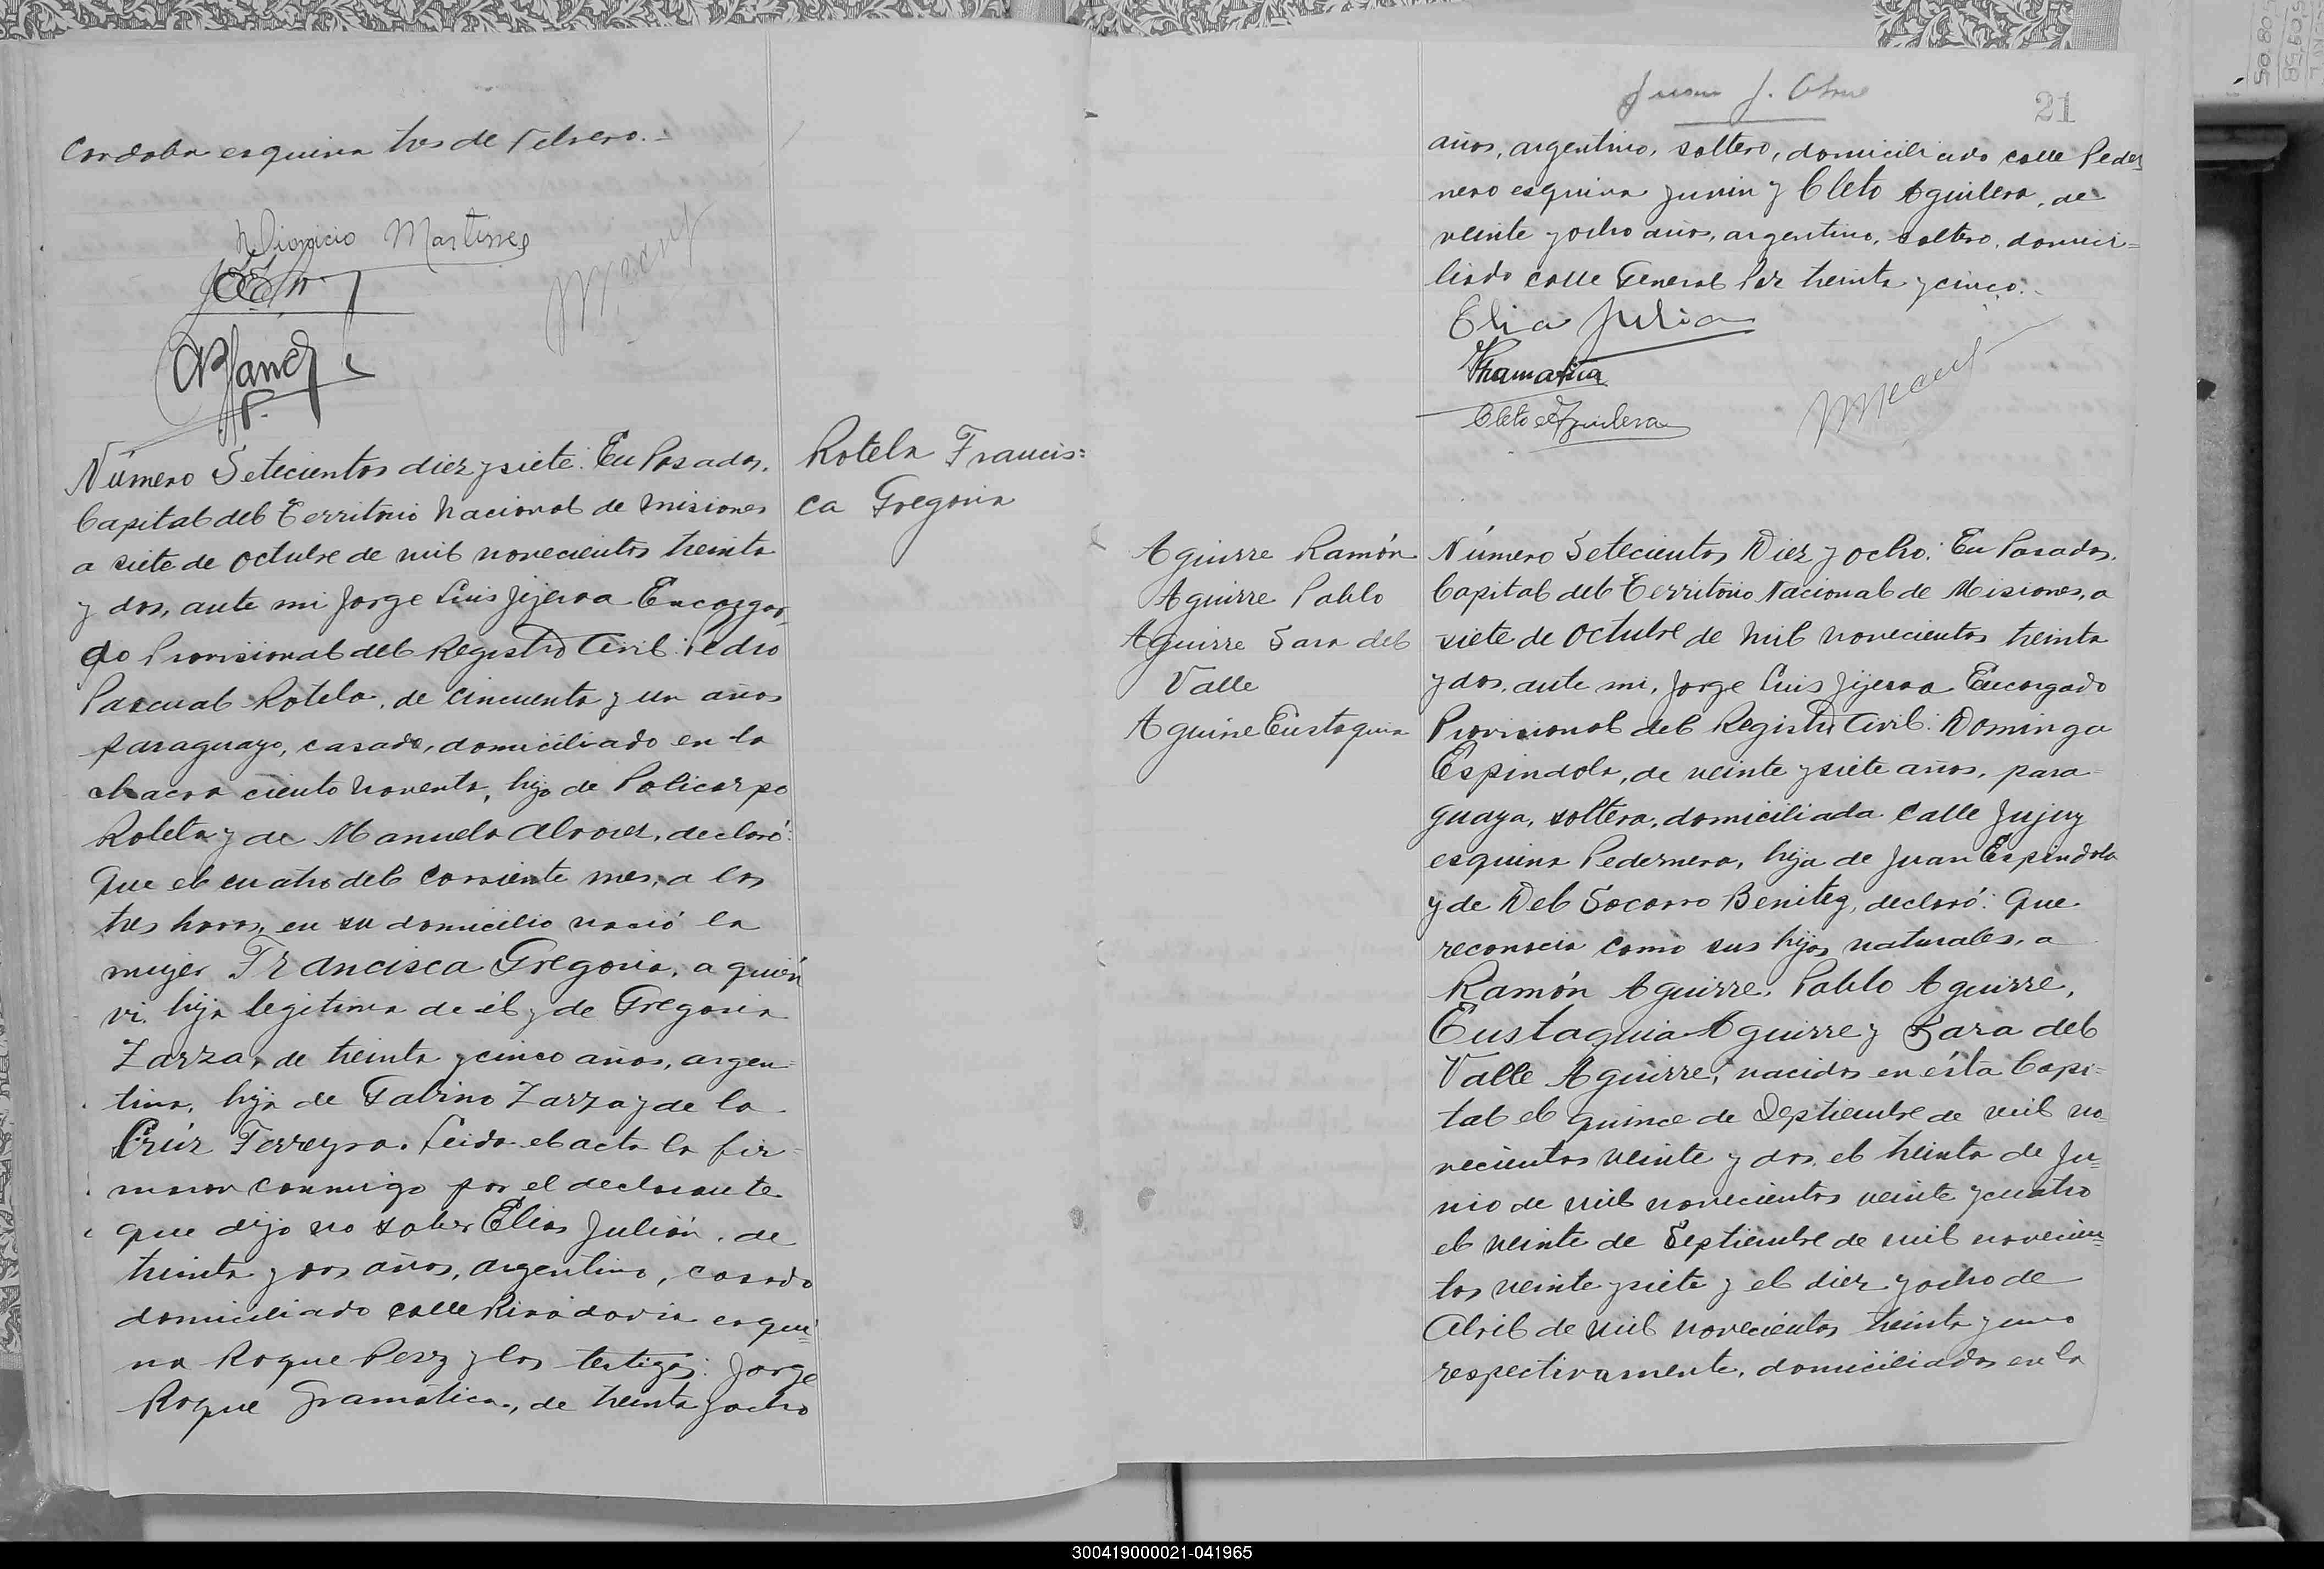 Cordoba esquina tres de Febrero.-
Dionicio Martinez
Número Setecientos diez y siete: En Posadas,
Capital del Territorio Nacional de Misiones
a siete de Octubre de mil novecientos treinta
y dos, ante mi Jorge Luis Jijena Encarga-
do Provisional del Registro Civil: Pedro
Pascual Rotela, de cincuenta y un años
paraguayo, casado, domiciliado en la
chacra ciento noventa, hijo de Policarpo
Rotela y de Manuela Alvarez, declaró:
Que el cuatro del corriente mes, a las
tres horas, en su domicilio nació la
mujer Francisca Gregoria, a quién
vi, hija legitima de él y de Gregoria
Zarza, de treinta y cinco años, argen-
tina, hija de Gabino Zarza y de la
Crúz Ferreyra. Leida el acta la fir-
maron conmigo por el declarante
que dijo no saber Elias Julián, de
treinta y dos años, argentino, casado
domiciliado calle Rivadavia esqui-
na Roque Perez y los testigos: Jorge
Roque Gramática, de treinta y ocho
Rotela Francis=
ca Gregoria
Juan J.
21
años, argentino, soltero, domiciliado calle Peder-
nera esquina Junin y Cleto Aguilera, de
veinte y ocho años, argentino, soltero, domici=
liado calle General Paz treinta y cinco.-
Elia Julia
Gramatica
Cleto Aguilera
Aguirre Ramón
Aguirre Pablo
Aguirre Sara del
Valle
Aguirre Eustaquia
Número Setecientos Diez y ocho: En Posadas,
Capital del Territorio Nacional de Misiones, a
siete de Octubre de mil novecientos treinta
y dos, ante mi, Jorge Luis Jijena Encargado
Provisional del Registro Civil: Dominga
Espindola, de veinte y siete años, para-
guaya, soltera, domiciliada calle Jujuy
esquina Pedernera, hija de Juan Espindola
y de Del Socorro Benitez, declaró: Que
reconocia como sus hijos naturales, a
Ramón Aguirre, Pablo Aguirre,
Eustaquia Aguirre y Sara del
Valle Aguirre, nacidos en ésta Capi=
tal el quince de Septiembre de mil no-
vecientos veinte y dos, el treinta de Ju-
nio de mil novecientos veinte y cuatro
el veinte de Septiembre de mil novecien-
tos veinte y siete y el diez y ocho de
Abril de mil novecientos treinta y uno
respectivamente, domiciliados en la
300419000021-041965